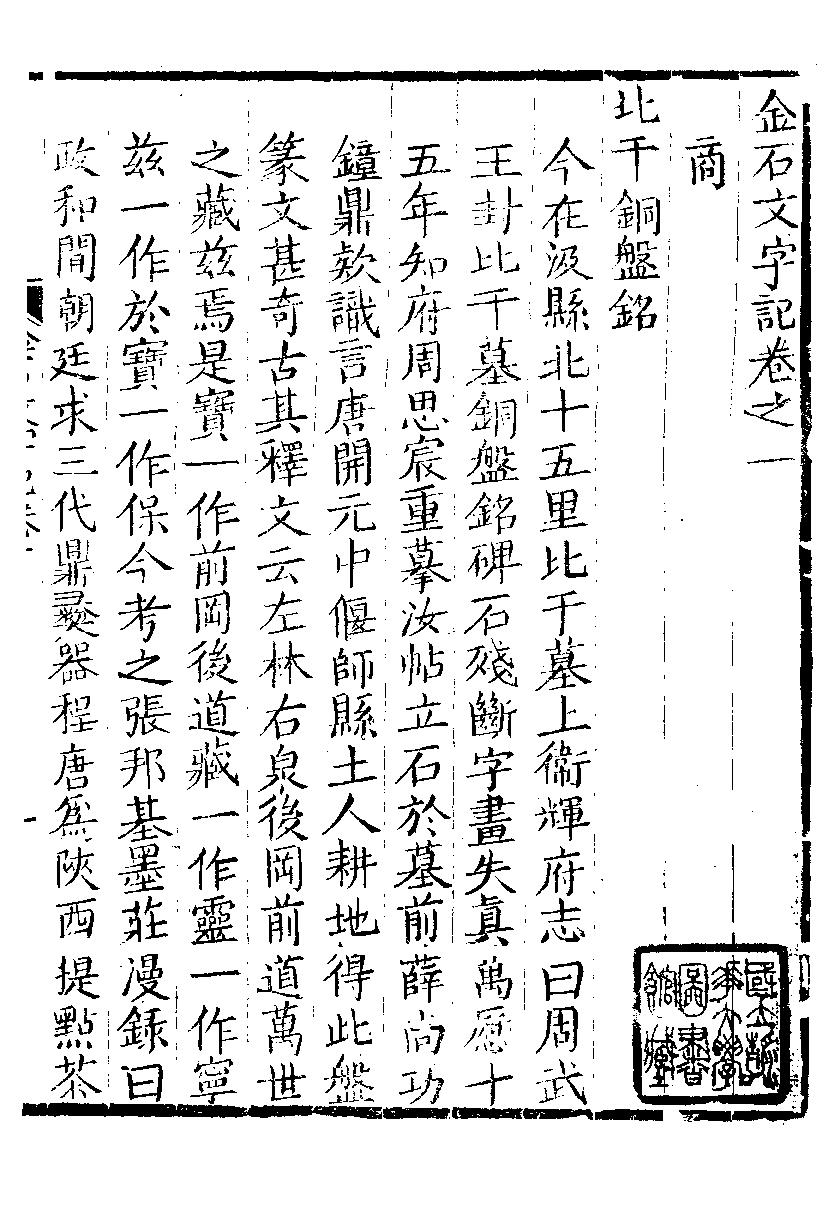 金石文字記卷之一
商
比干銅盤銘
今在汲縣北十五里比干墓上衞輝府志曰周武
王封比干墓銅盤銘碑石殘斷字畫失眞萬曆十
五年知府周思宸重摹汝帖立石於墓前薛尚功
鐘鼎欵識言唐開元中偃師縣土人耕地得此盤
篆文甚奇古其釋文云左林右泉後岡前道萬世
之藏兹焉是寶一作前岡後道藏一作靈一作寧
兹一作於寶一作保今考之張邦基墨莊漫錄曰
政和間朝廷求三代鼎彝器程唐爲陜西提點茶